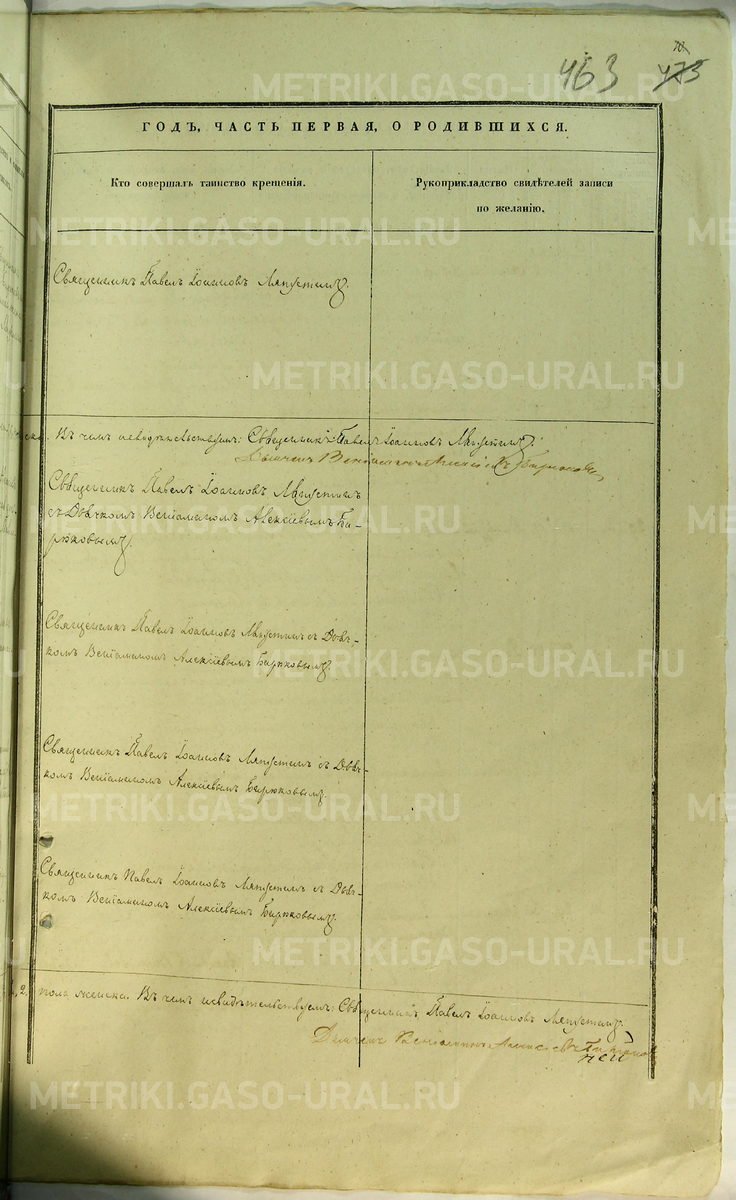 463
475
ГОДЪ, ЧАСТЬ ПЕРВАЯ, О РОДИВШИХСЯ.
Кто совершалъ таинство крещенія.
Рукоприкладство свидѣтелей записи
по желанію.
Священникъ Павелъ Іоанновъ Ляпустинъ.
Въ чемъ свидѣтельствуемъ: Священникъ Павелъ Іоанновъ Ляпустинъ.
Дьячекъ Веніаминъ Алексіевъ Бирюковъ
Священникъ Павелъ Іоанновъ Ляпустинъ
съ Дьячкомъ Веніаминомъ Алексіевымъ Би-
рюковымъ.
Священникъ Павелъ Іоанновъ Ляпустинъ съ Дьяч-
комъ Веніаминомъ Алексіевымъ Бирюковымъ.
Священникъ Павелъ Іоанновъ Ляпустинъ съ Дьяч-
комъ Веніаминомъ Алексіевымъ Бирюковымъ.
Священникъ Павелъ Іоанновъ Ляпустинъ съ Дьяч-
комъ Веніаминомъ Алексіевымъ Бирюковымъ.
2. пола женска. Въ чемъ свидѣтельствуемъ: Священникъ Павелъ Іоанновъ Ляпустинъ
Дьячекъ Веніаминъ Алексіевъ Бирюковъ
METRIKI.GASO-URAL.RU